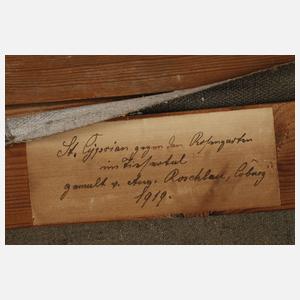 St. Cyprian gegen den Rosengarten
im Tiersertal
gemalt v. Aug. Roschlau, Coburg
1919.